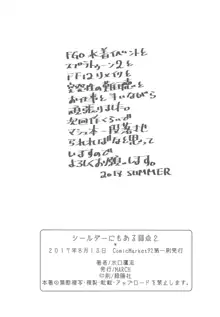 FGO水着イベントと
スプラトゥーン2と
FF12リメイクと
突発性の難聴と
お仕事をしながら
頑張りました。
次回作くらいで
マシュ本一段落させ
られればなと思って
いますので
よろしくお願いします。
2017 SUMMER
シールダーにもある弱点2
2017年8月13日 ComicMarket92第一刷発行
著者/水口鷹志
発行/MARCH
印刷/陽陽社
本書の無断複写・複製・転載・アップロードを禁止します。